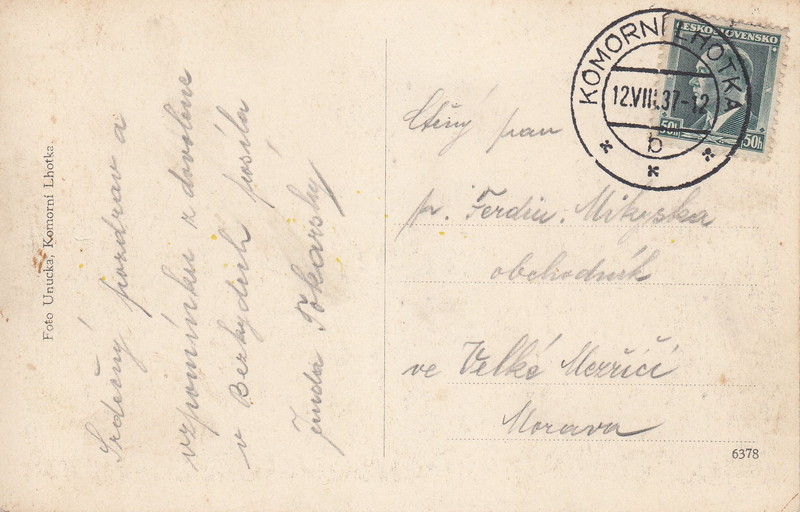 Foto Unucka, Komorní Lhotka.
Srdečný pozdrav a
vzpomínku z dovolené
v Bezkydech posílá
Jenda Tokarský
KOMORNÍ LHOTKA
12.VIII.37-12
b
ČESKOSLOVENSKO
50h 50h
Ctěný pan
p. Ferdin. Mikyska
obchodník
ve Velké Mezříčí
Morava
6378